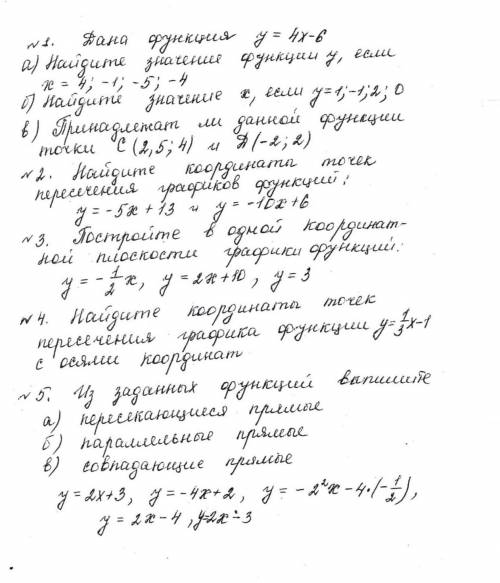 №1. Дана функция y = 4x-6
а) Найдите значение функции y, если
x = 4; -1; -5; -4
б) Найдите значение x, если y=1;-1;2; 0
в) Принадлежат ли данной функции
точки C(2,5; 4) и D(-2; 2)
№2. Найдите координаты точек
пересечения графиков функций:
y = -5x + 13 и y = -10x + 6
№3. Постройте в одной координат-
ной плоскости графики функций:
y = -1/2 x, y = 2x+10, y = 3
№4. Найдите координаты точек
пересечения графика функции y=1/3x-1
с осями координат
№5. Из заданных функций выпишите
а) пересекающиеся прямые
б) параллельные прямые
в) совпадающие прямые
y = 2x+3, y = -4x+2, y = -2²x - 4·(-1/2),
y = 2x - 4, y=2x-3